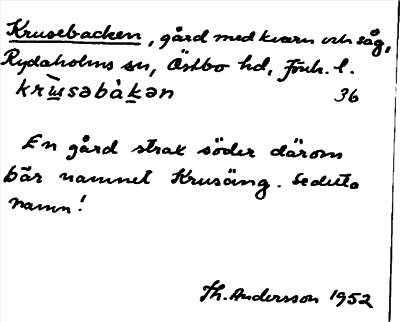 Krusebacken, gård med kvarn och såg,
Rydaholms sn, Östbo hd, Jönk. l.
krùsəbàkən 36
En gård strax söder därom
bär namnet Krusäng. Se detta
namn!
Th. Andersson 1952